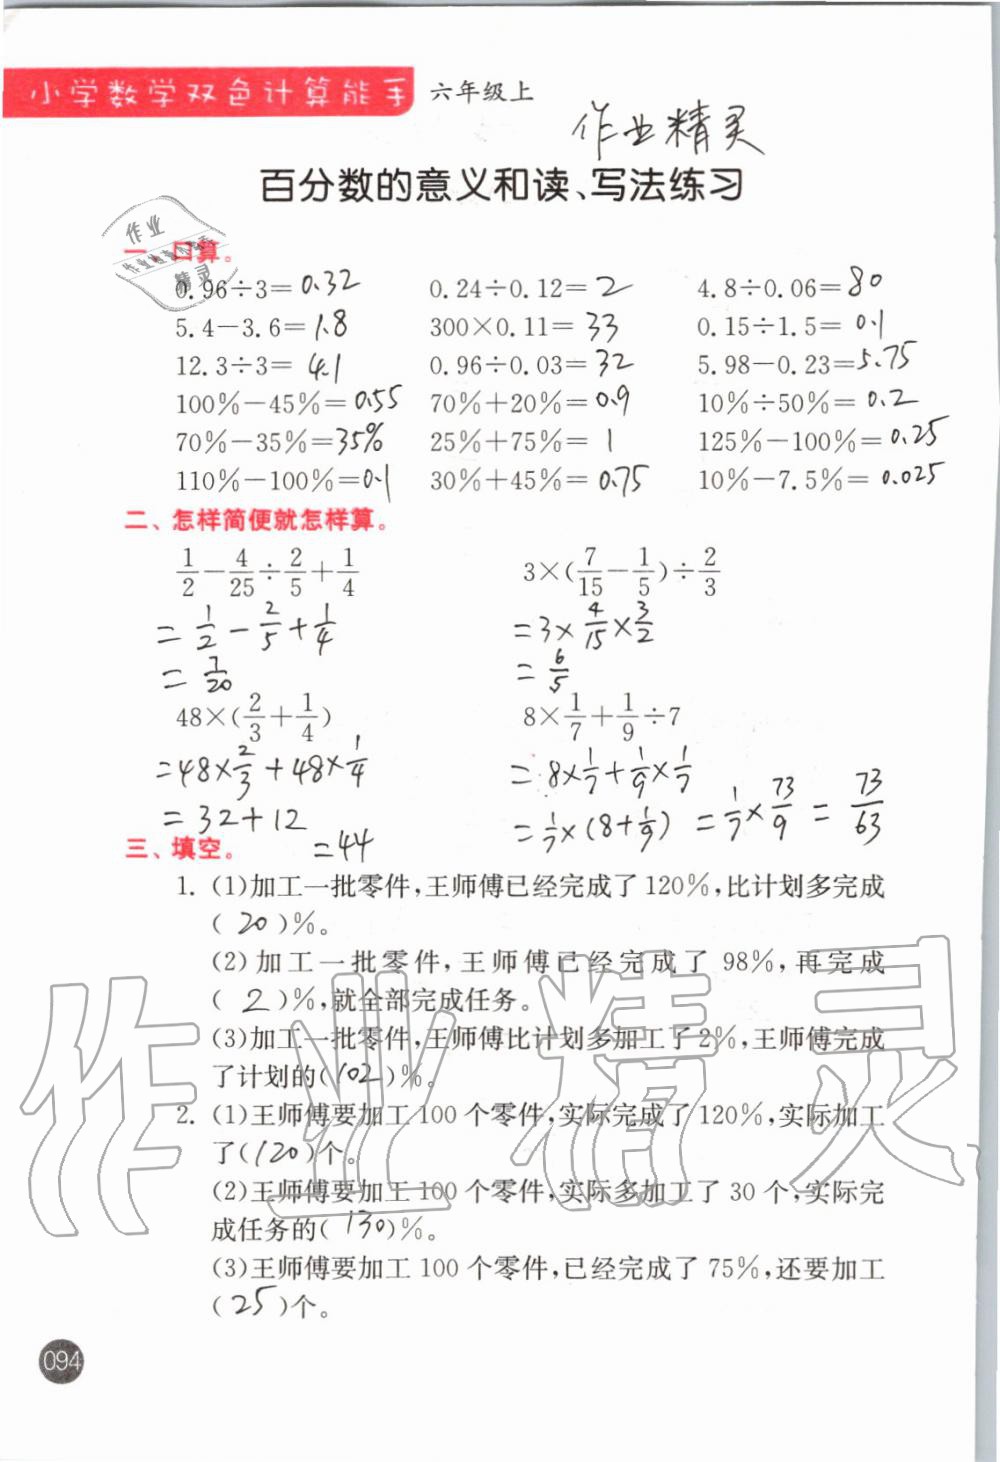 小学数学双色计算能手 六年级上
作业精灵
百分数的意义和读、写法练习
作业
作业检查小帮手
精灵
一、口算。
0.96÷3=0.32 0.24÷0.12=2 4.8÷0.06=80
5.4-3.6=1.8 300×0.11=33 0.15÷1.5=0.1
12.3÷3=4.1 0.96÷0.03=32 5.98-0.23=5.75
100%-45%=0.55 70%+20%=0.9 10%÷50%=0.2
70%-35%=35% 25%+75%=1 125%-100%=0.25
110%-100%=0.1 30%+45%=0.75 10%-7.5%=0.025
二、怎样简便就怎样算。
1/2-4/25÷2/5+1/4 3×(7/15-1/5)÷2/3
=1/2-2/5+1/4 =3×4/15×3/2
=7/20 =6/5
48×(2/3+1/4) 8×1/7+1/9÷7
=48×2/3+48×1/4 =8×1/7+1/9×1/7
=32+12 =1/7×(8+1/9) =1/7×73/9 =73/63
三、填空。 =44
1. (1)加工一批零件,王师傅已经完成了120%,比计划多完成
( 20 )%。
(2)加工一批零件,王师傅已经完成了98%,再完成
( 2 )%,就全部完成任务。
(3)加工一批零件,王师傅比计划多加工了2%,王师傅完成
了计划的(102)%。
2. (1)王师傅要加工100个零件,实际完成了120%,实际加工
了(120)个。
(2)王师傅要加工100个零件,实际多加工了30个,实际完
成任务的( 130 )%。
(3)王师傅要加工100个零件,已经完成了75%,还要加工
( 25 )个。
作业精灵
094